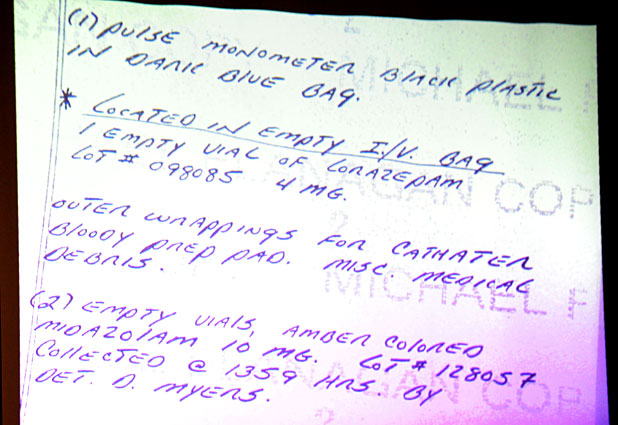 (1) PULSE MONOMETER BLACK PLASTIC
IN DARK BLUE BAG.
* LOCATED IN EMPTY I./V. BAG
1 EMPTY VIAL OF LORAZEPAM
LOT # 098085 4 MG.
OUTER WRAPPINGS FOR CATHATER
BLOODY PREP PAD. MISC. MEDICAL
DEBRIS.
(2) EMPTY VIALS, AMBER COLORED
MIDAZOLAM 10 MG. LOT # 128057
COLLECTED @ 1359 HRS. BY
DET. D. MYERS.
MICHAEL F
ANAGAN COP
MICHAEL F
ANAGAN COP